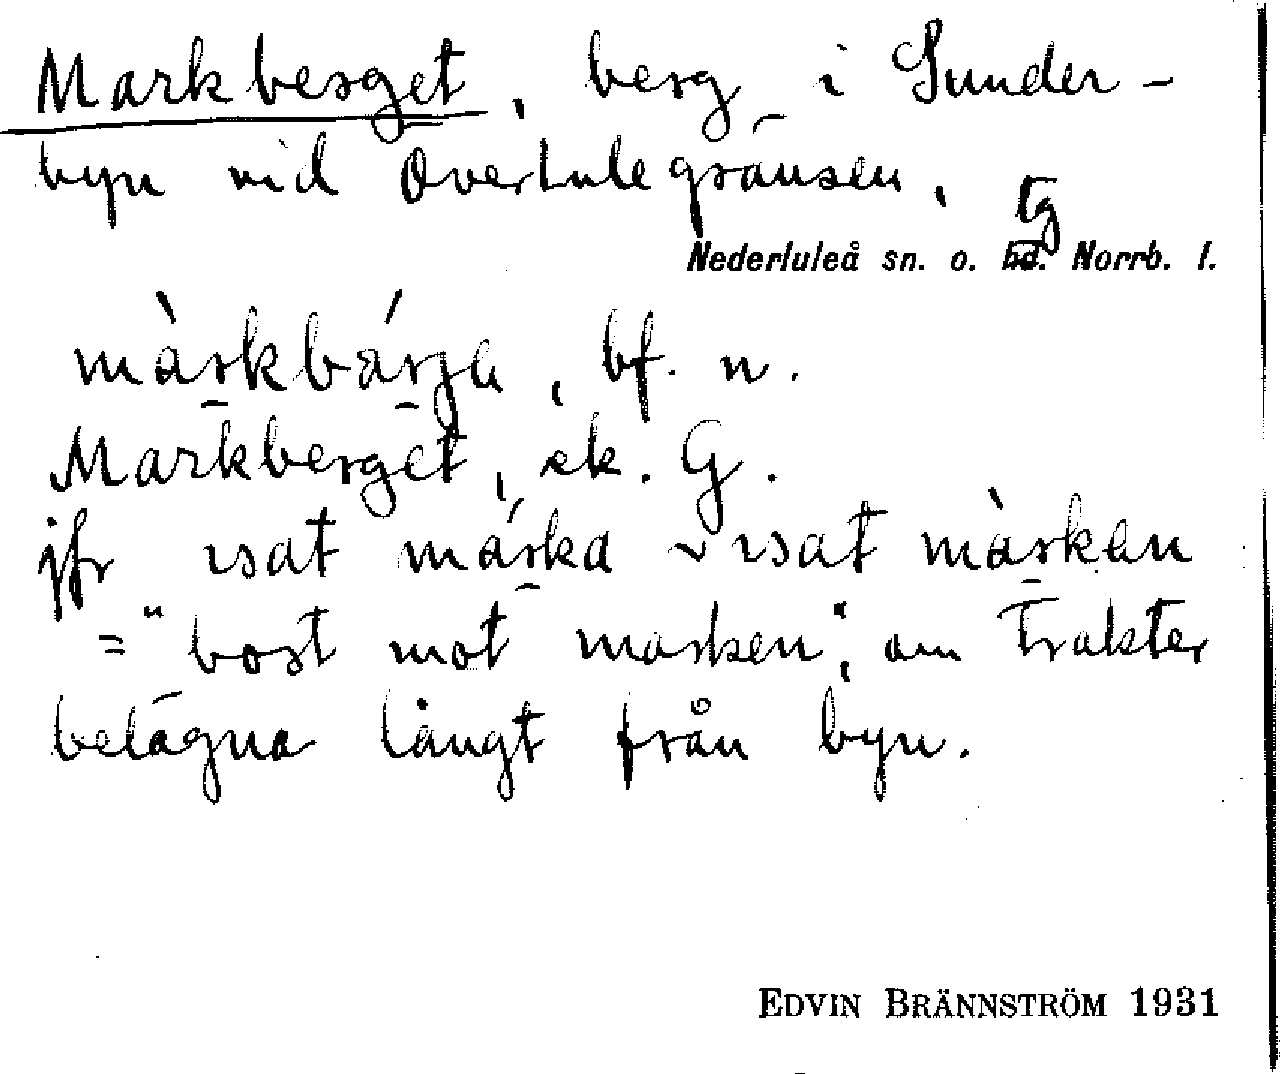 Markberget, berg i Sunder-
byn vid Överlulegränsen.
tg
Nederluleå sn. o. hd. Norrb. l.
màrkbárja, bf. n.
Markberget, ek. G.
jfr ısat márka v ısat màrkan
="bort mot marken", om trakter
belägna långt från byn.
EDVIN BRÄNNSTRÖM 1931